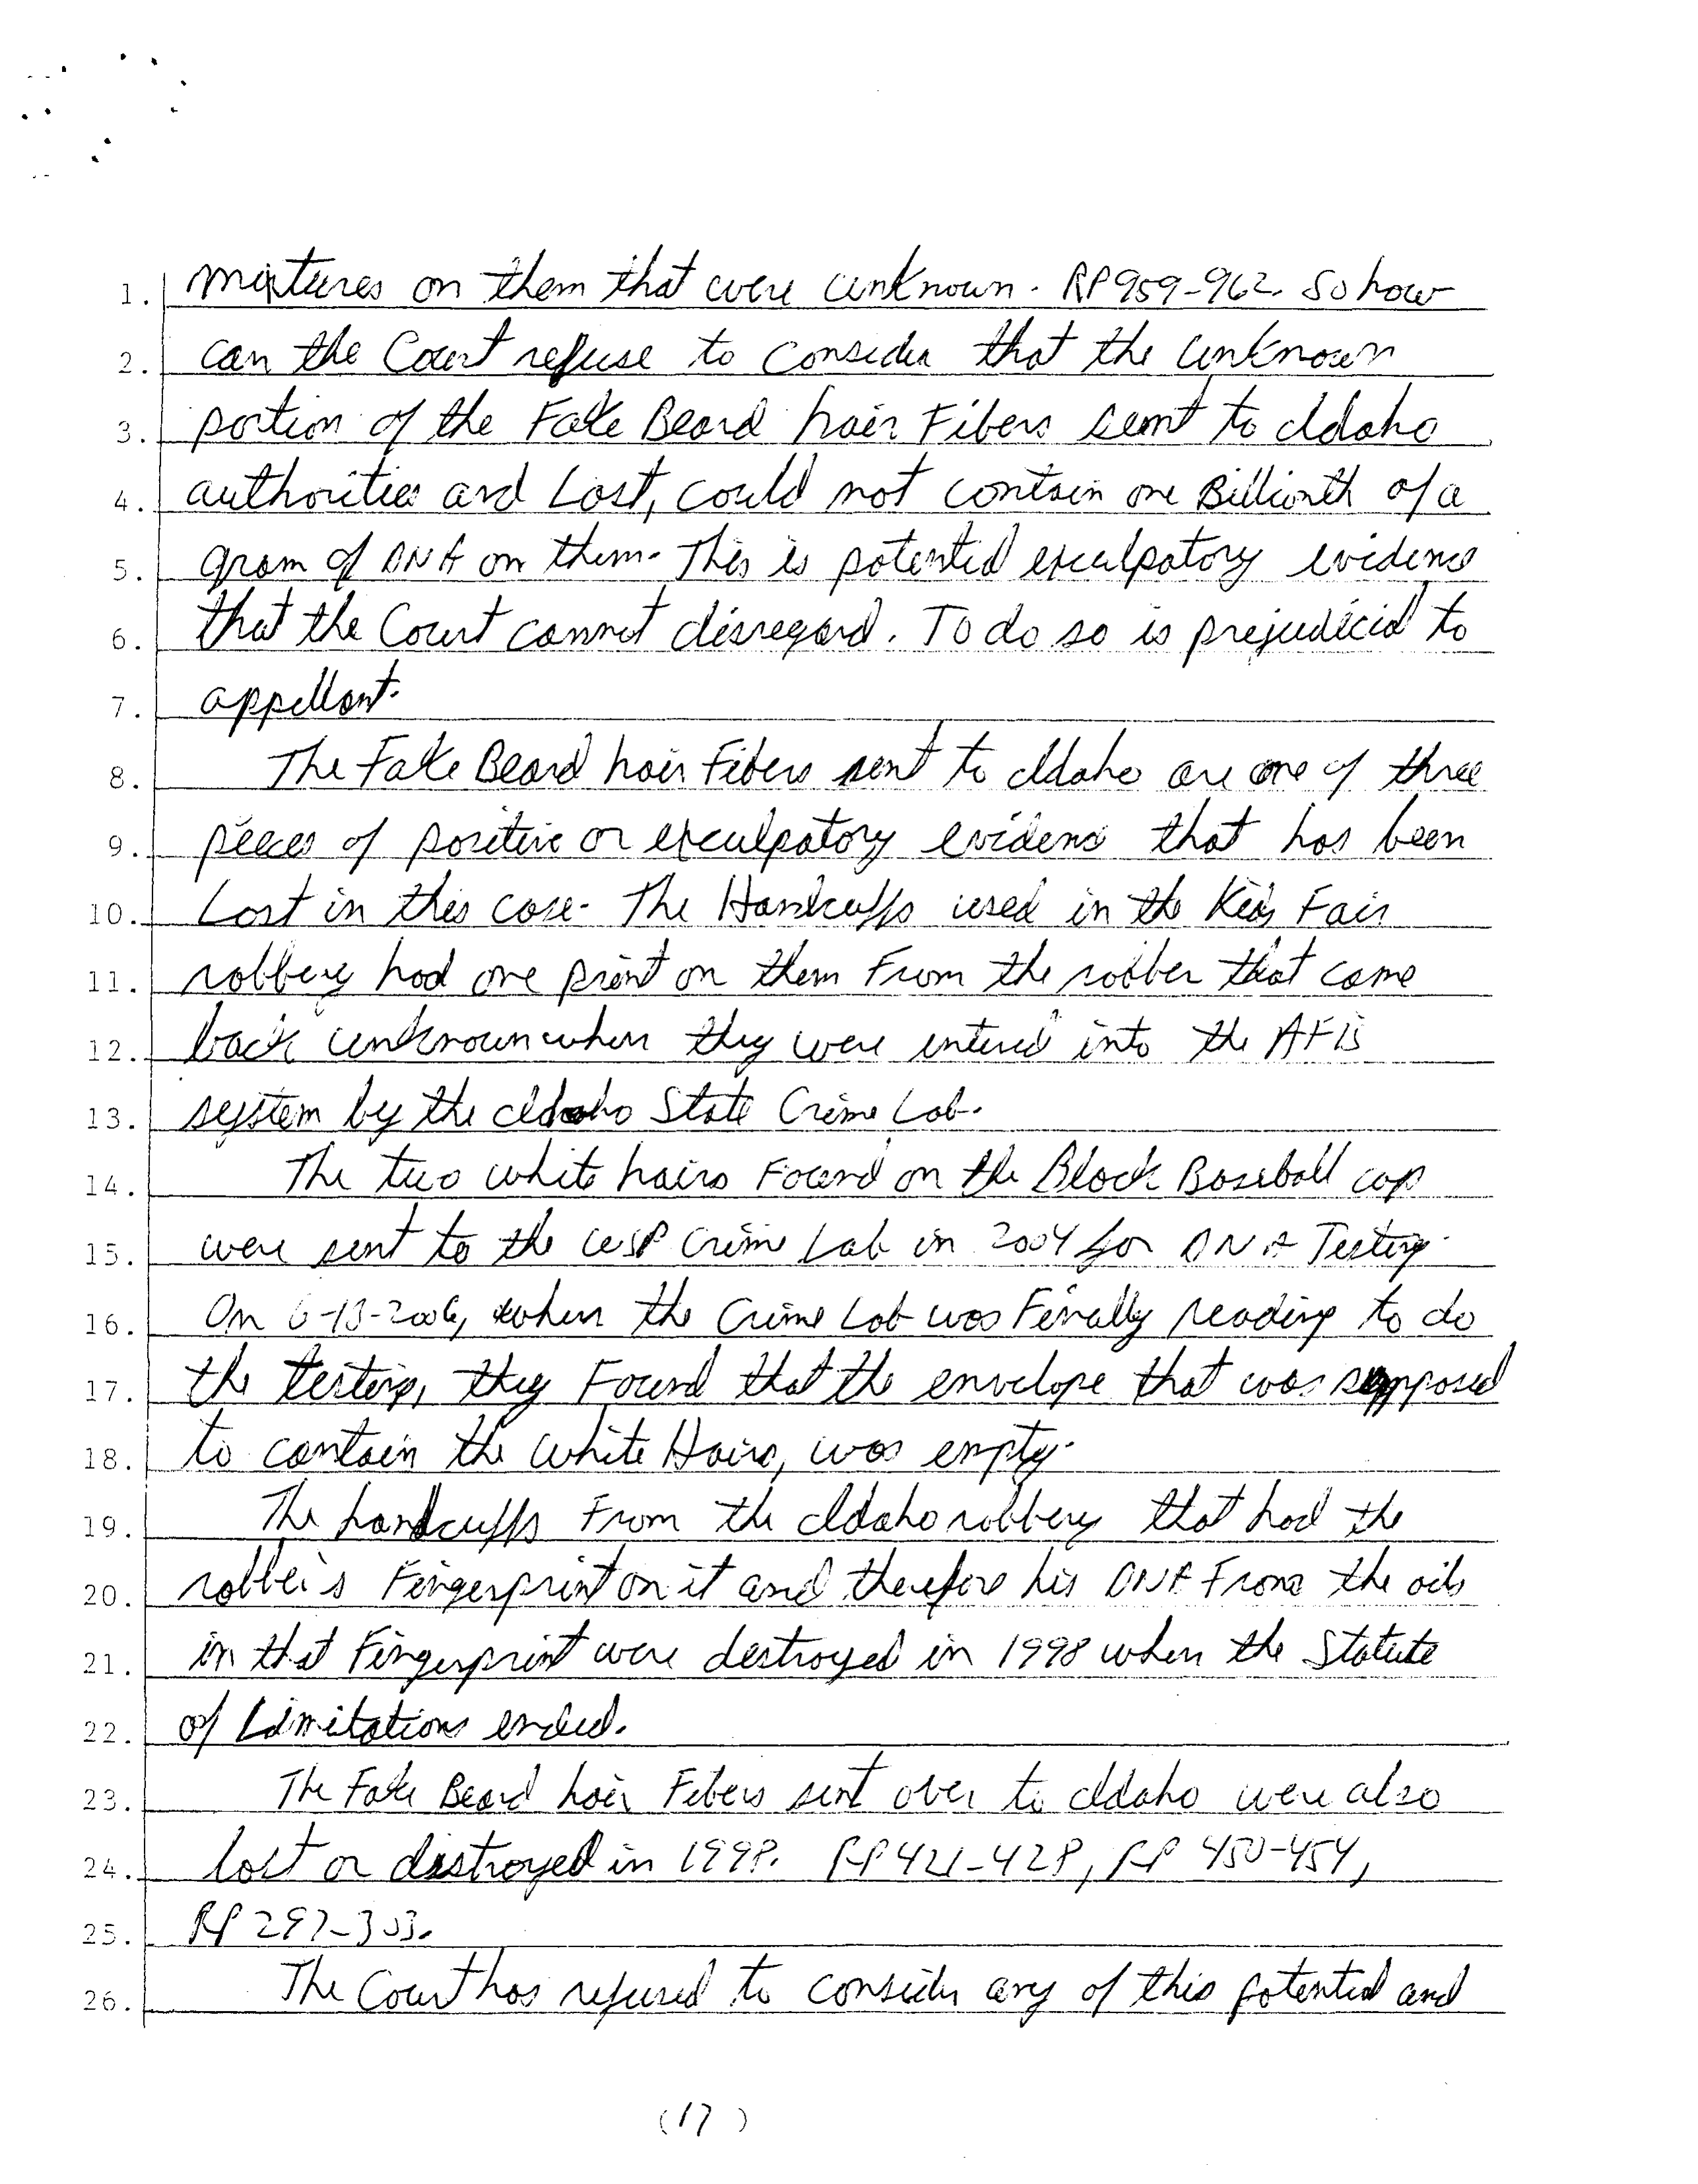 1. mixtures on them that were unknown. RP 959-962. So how
2. can the Court refuse to consider that the unknown
3. portion of the Fake Beard hair Fibers sent to Idaho
4. authorities and Lost, could not contain one Billionth of a
5. gram of DNA on them. This is potential exculpatory evidence
6. that the Court cannot disregard. To do so is prejudicial to
7. appellant.
8. The Fake Beard hair Fibers sent to Idaho are one of three
9. pieces of positive or exculpatory evidence that has been
10. Lost in this case. The Handcuffs used in the Kids Fair
11. robbery had one print on them From the robber that came
12. back unknown when they were entered into the AFIS
13. system by the Idaho State Crime Lab.
14. The two white hairs Found on the Black Baseball cap
15. were sent to the WSP Crime Lab in 2004 for DNA Testing.
16. On 6-13-2006, when the Crime Lab was Finally reading to do
17. the testing, they Found that the envelope that was supposed
18. to contain the White Hairs, was empty.
19. The handcuffs From the Idaho robbery that had the
20. robber's Fingerprint on it and therefore his DNA From the oils
21. in that Fingerprint were destroyed in 1998 when the Statute
22. of Limitations ended.
23. The Fake Beard hair Fibers sent over to Idaho were also
24. lost or destroyed in 1998. RP 421-428, RP 450-454,
25. RP 297-303.
26. The Court has refused to consider any of this potential and
(17)